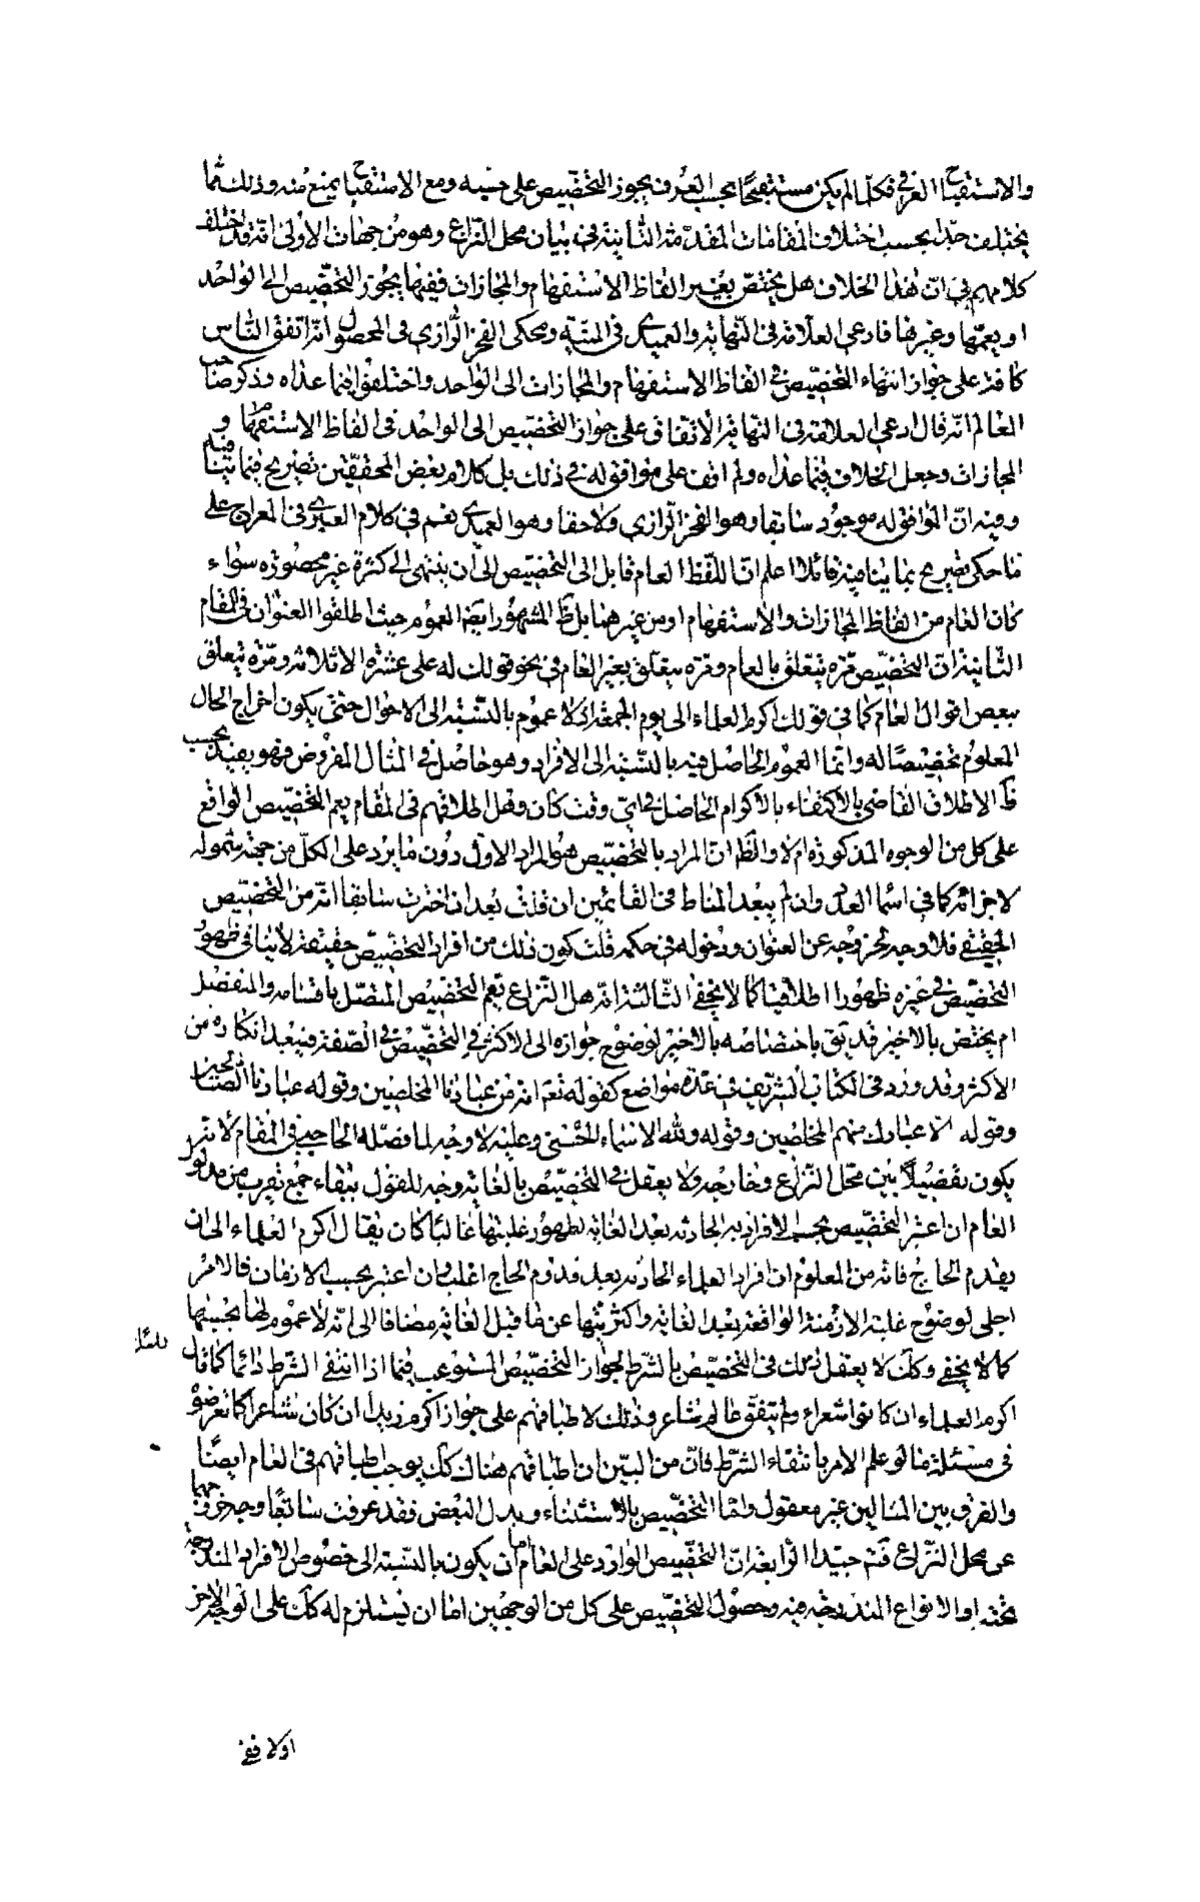 والاستقباح العرفي فكلما لم يكن مستقبحا بحسب العرف يجوز التخصيص على حسبه ومع الاستقباح يمنع منه وذلك مما
يختلف جدا بحسب اختلاف المقامات المقدمة الثانية في بيان محل النزاع وهو من جهات الأولى انه قد اختلف
كلامهم في ان هذا الخلاف هل يختص بغير الفاظ الاستفهام والمجازات ففيها يجوز التخصيص الى الواحد
او يعمها وغيرها فادعى العلامة في النهاية والعميدي في المنية وحكى الفخر الرازي في المحصول انه اتفق الناس
كافة على جواز انتهاء التخصيص في الفاظ الاستفهام والمجازات الى الواحد واختلفوا فيما عداه وذكر صاحب
المعالم انه قال ادعى العلامة في النهاية الاتفاق على جواز التخصيص الى الواحد في الفاظ الاستفهام و
المجازات وجعل الخلاف فيما عداه ولم اقف على موافق له في ذلك بل كلام بعض المحققين تصريح فيما ينافيه
وفيه ان الموافق له موجود سابقا وهو الفخر الرازي ولاحقا وهو العميدي نعم في كلام العبري في المعراج على
ما حكى تصريح بما ينافيه قائلا اعلم ان اللفظ العام قابل الى التخصيص الى ان ينتهى الى كثرة غير محصورة سواء
كان العام من الفاظ المجازات والاستفهام او من غيرهما بل ظ المشهور ايضا العموم حيث اطلقوا العنوان في المقام
الثانية ان التخصيص مرة يتعلق بالعام ومرة يتعلق بغير العام في نحو قولك له على عشرة الا ثلاثة ومرة يتعلق
ببعض احوال العام كما في قولك اكرم العلماء الى يوم الجمعة اذ لا عموم بالنسبة الى الاحوال حتى يكون اخراج الحال
المعلوم تخصيصا له وانما العموم الحاصل فيه بالنسبة الى الافراد وهو حاصل في المثال المفروض فهو يفيد بحسب
ظ الاطلاق القاضي بالاكتفاء بالاكرام الحاصل في اي وقت كان وهل اطلاقهم في المقام يعم التخصيص الواقع
على كل من الوجوه المذكورة ام لا والظ ان المراد بالتخصيص هو المراد الاول دون ما يرد على الكل من جهة شموله
لاجزائه كما في اسما العدد وان لم يبعد المناط في القائمين ان قلت بعد ان اخترت سابقا انه من التخصيص
الحقيقي فلا وجه لخروجه عن العنوان ودخوله في حكمه قلت كون ذلك من افراد التخصيص حقيقة لا ينافى ظهور
التخصيص في غيره ظهورا اطلاقيا كما لا يخفى الثالثة انه هل النزاع يعم التخصيص المتصل باقسامه والمنفصل
ام يختص بالاخير قد يق باختصاصه بالاخير لوضوح جوازه الى الاكثر في التخصيص في الصفة فيبعد انكاره من
الاكثر وقد ورد في الكتاب الشريف في عدة مواضع كقوله تعم انه من عبادنا المخلصين وقوله عبادنا الصالحين
وقوله الا عبادك منهم المخلصين وقوله ولله الاسماء الحسنى وعليه لا وجه لما فصله الحاجبي في المقام لانه
يكون تفصيلا بين محل النزاع وخارجه ولا يعقل في التخصيص بالغاية وجه للقول ببقاء جمع يقرب من مدلول
العام ان اعتبر التخصيص بحسب الافراد الحادثة بعد الغاية لظهور غلبتها غالبا كان يقال اكرم العلماء الى ان
يقدم الحاج فانه من المعلوم ان افراد العلماء الحادثة بعد قدوم الحاج اغلب وان اعتبر بحسب الازمان فالامر
اجلى لوضوح غلبة الازمنة الواقعة بعد الغاية واكثريتها عن ما قبل الغاية مضافا الى انه لا عموم لها بحسبها
كما لا يخفى وكك لا يعقل ذلك في التخصيص بالشرط لجواز التخصيص المستوعب فيما اذا انتفى الشرط دائما كما قال للقائل
اكرم العلماء ان كانوا شعراء ولم يتفق عالم شاعر وذلك لاطباقهم على جواز اكرم زيدا ان كان شاعرا كما تعرضوا
في مسئلة ما لو علم الامر بانتفاء الشرط فان من البين ان اطباقهم هناك كك يوجب اطباقهم في العام ايضا
والفرق بين المثالين غير معقول واما التخصيص بالاستثناء وبدل البعض فقد عرفت سابقا وجه خروجهما
عن محل النزاع فتم جيدا الرابعة ان التخصيص الوارد على العام اما ان يكون بالنسبة الى خصوص الافراد المندرجة
تحته او الانواع المندرجة فيه وحصول التخصيص على كل من الوجهين اما ان يستلزم له كك على الوجه الاخر
او لا ففي